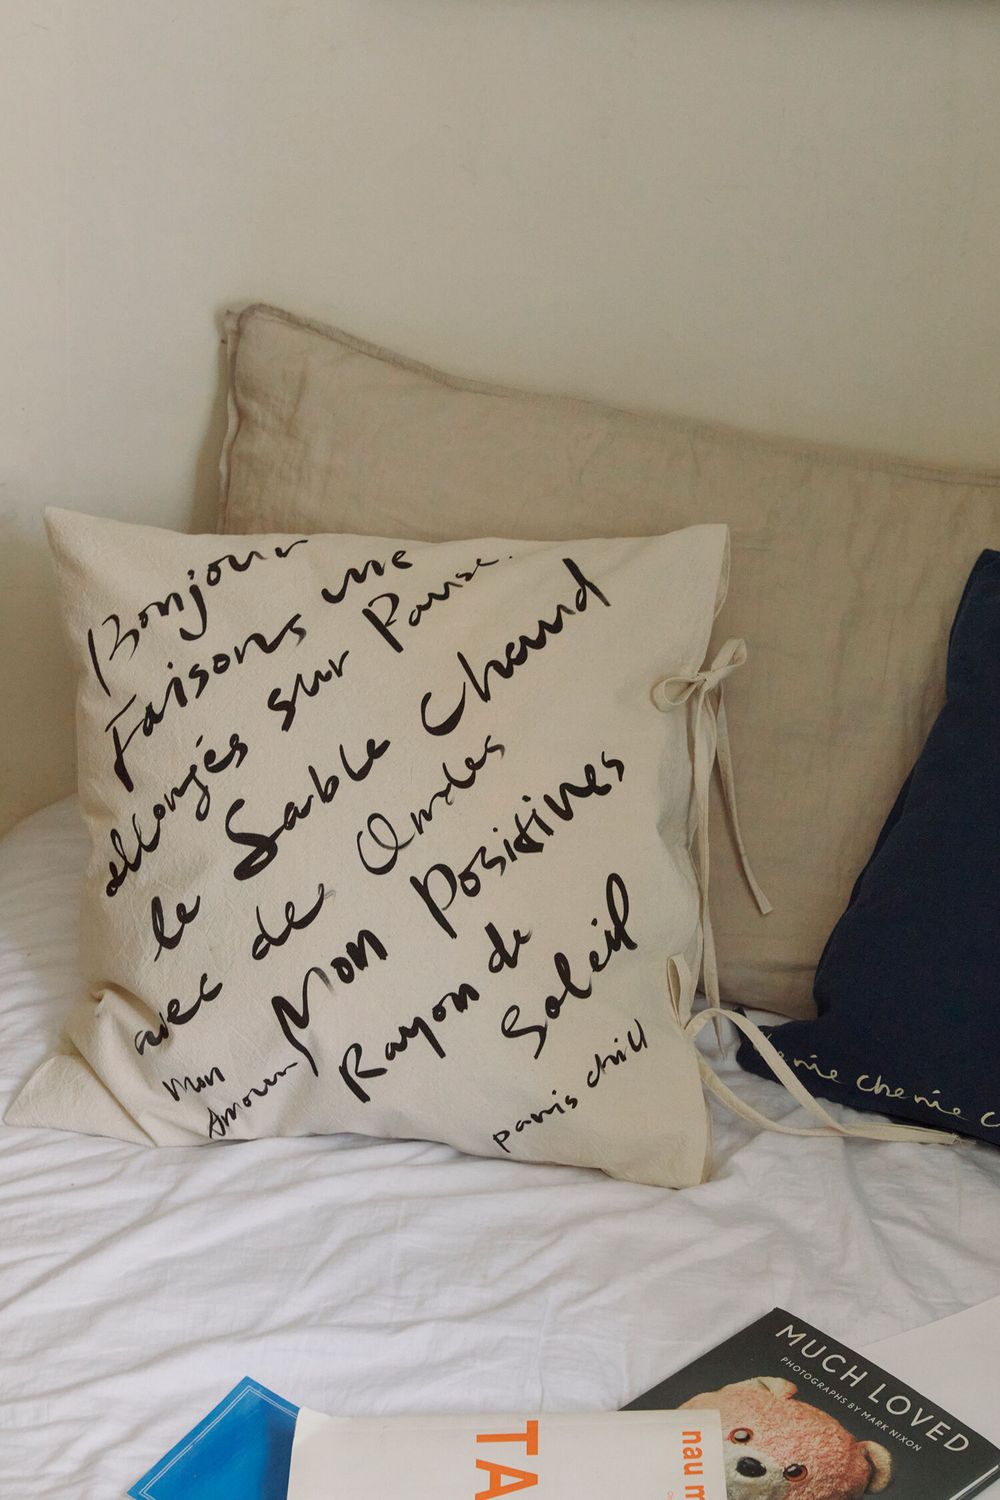 Bonjour
Faisons une
allongés sur Pause.
le Sable Chaud
avec de Ondes
Mon Positives
Mon
Amour
Rayon de
Soleil
paris chill
cherie c
MUCH LOVED
PHOTOGRAPHS BY MARK NIXON
TA
nau m